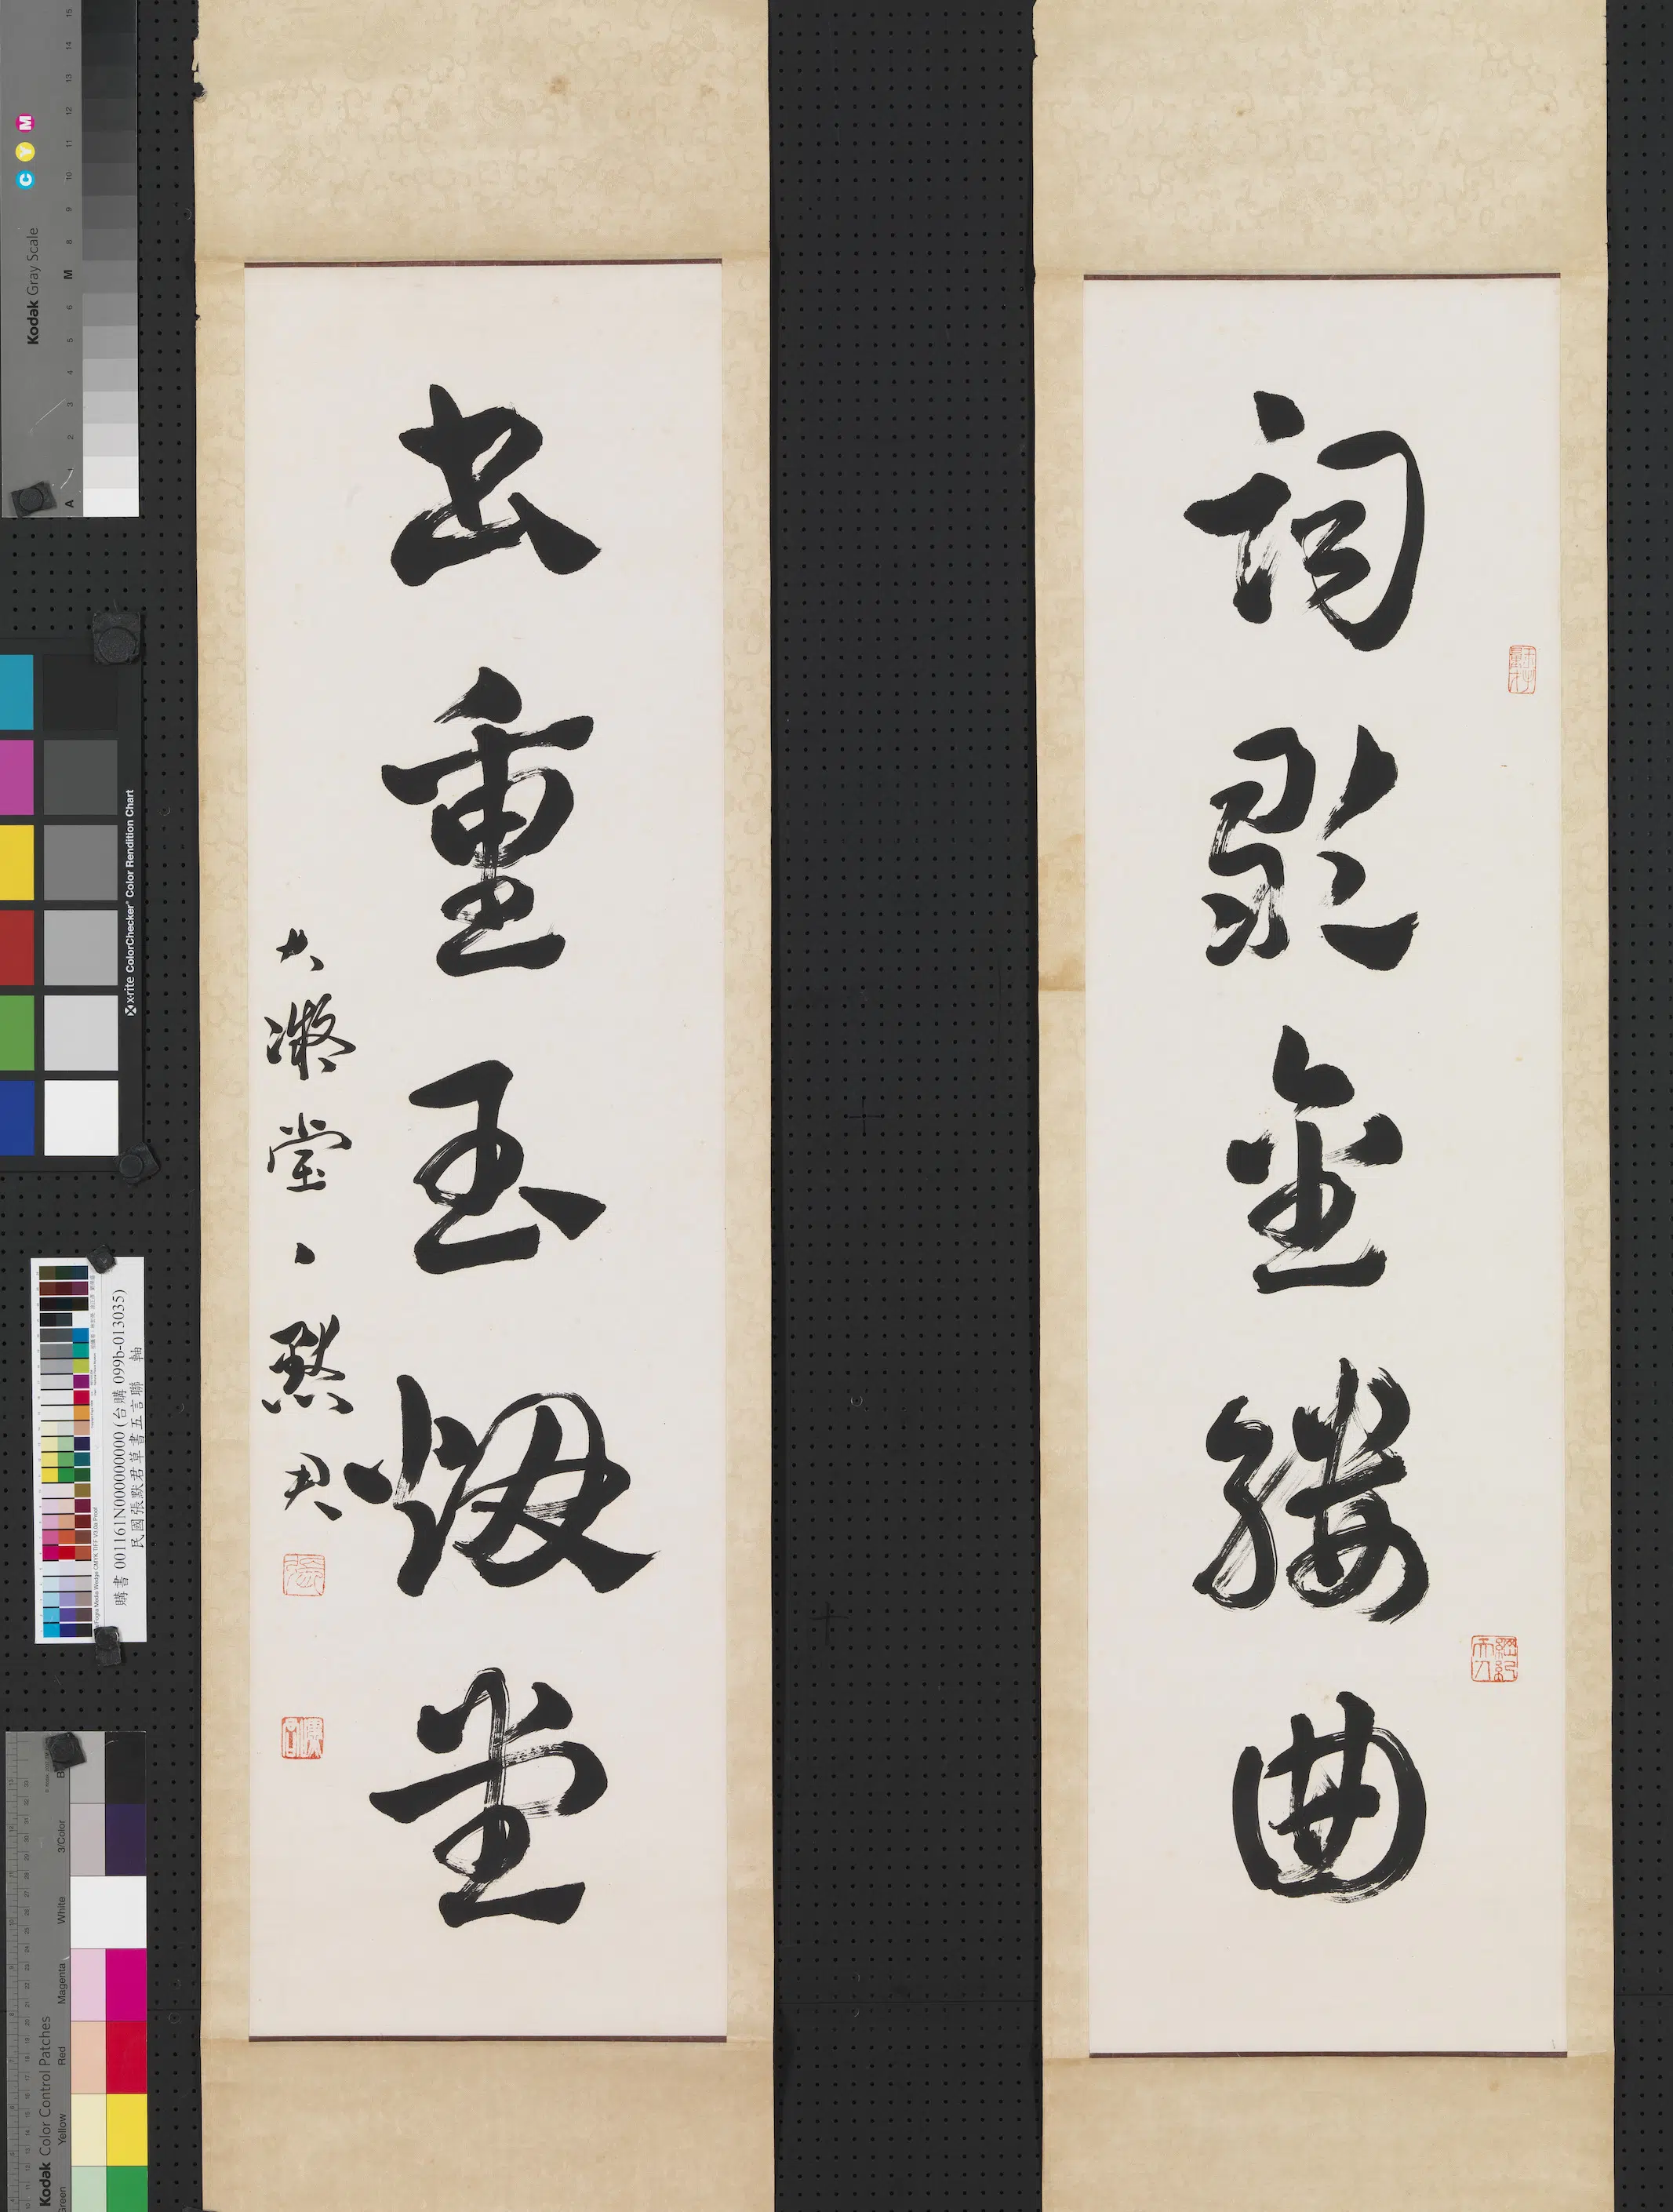 詞歌金縷曲
書重玉煙堂
大凝堂、默君
購書 001161N000000000 (台購 099b-013035)
民國張默君草書五言聯 軸
Kodak Gray Scale
C Y M
A 1 2 3 4 5 6 M 8 9 10 11 12 13 14 15
x-rite ColorChecker Color Rendition Chart
Kodak Color Control Patches
Green Yellow Red Magenta White 3/Color